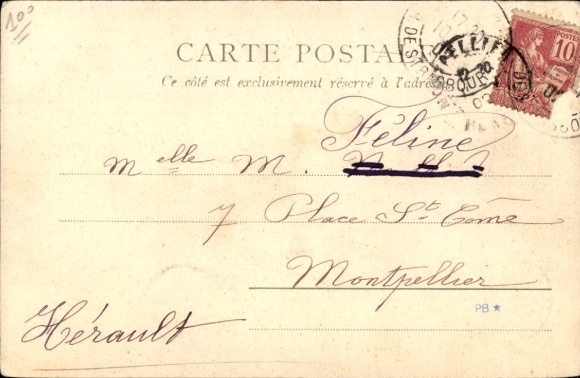 100
CARTE POSTALE
Ce côté est exclusivement réservé à l'adresse
POSTES
10
Féline
Melle M.
7 Place St Côme
Montpellier
PB ★
Hérault